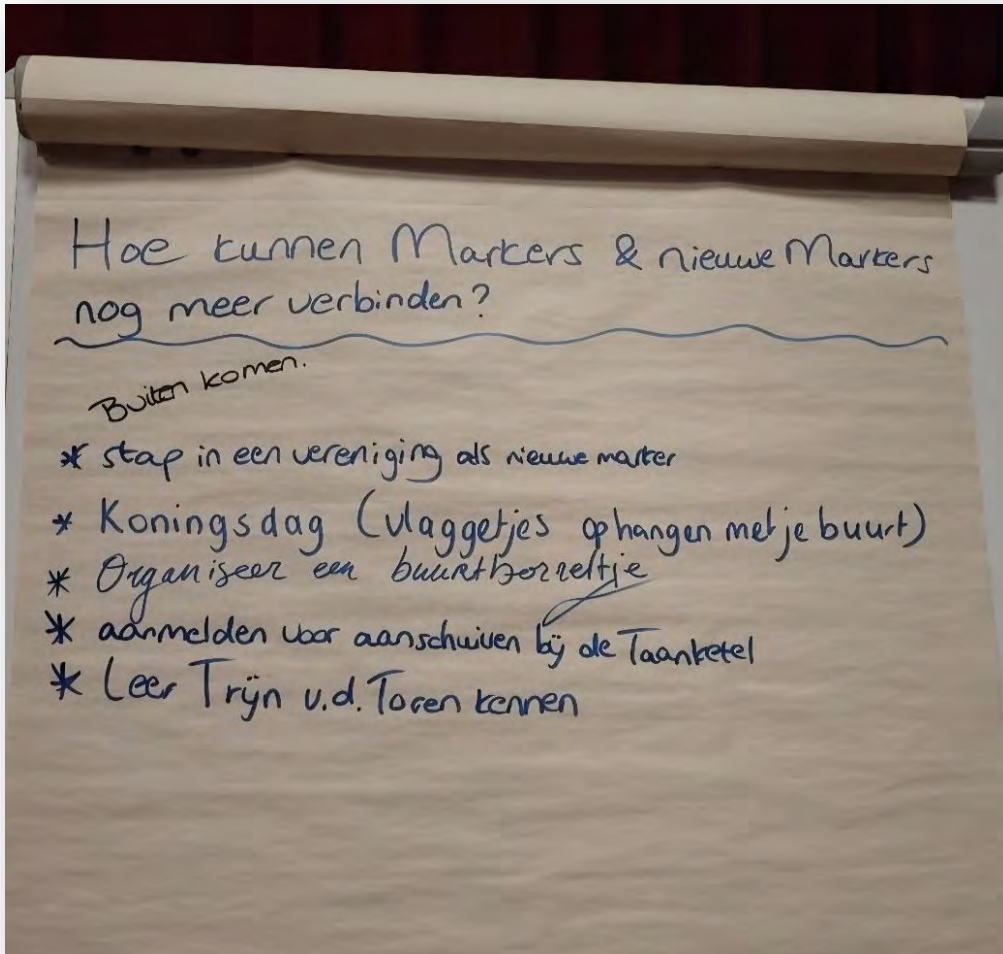 Hoe kunnen Markers & nieuwe Markers
nog meer verbinden?
Buiten komen.
* stap in een vereniging als nieuwe marker
* Koningsdag (vlaggetjes ophangen met je buurt)
* Organiseer een buurtborreltje
* aanmelden voor aanschuiven bij de Taanketel
* Leer Trijn v.d. Toren kennen